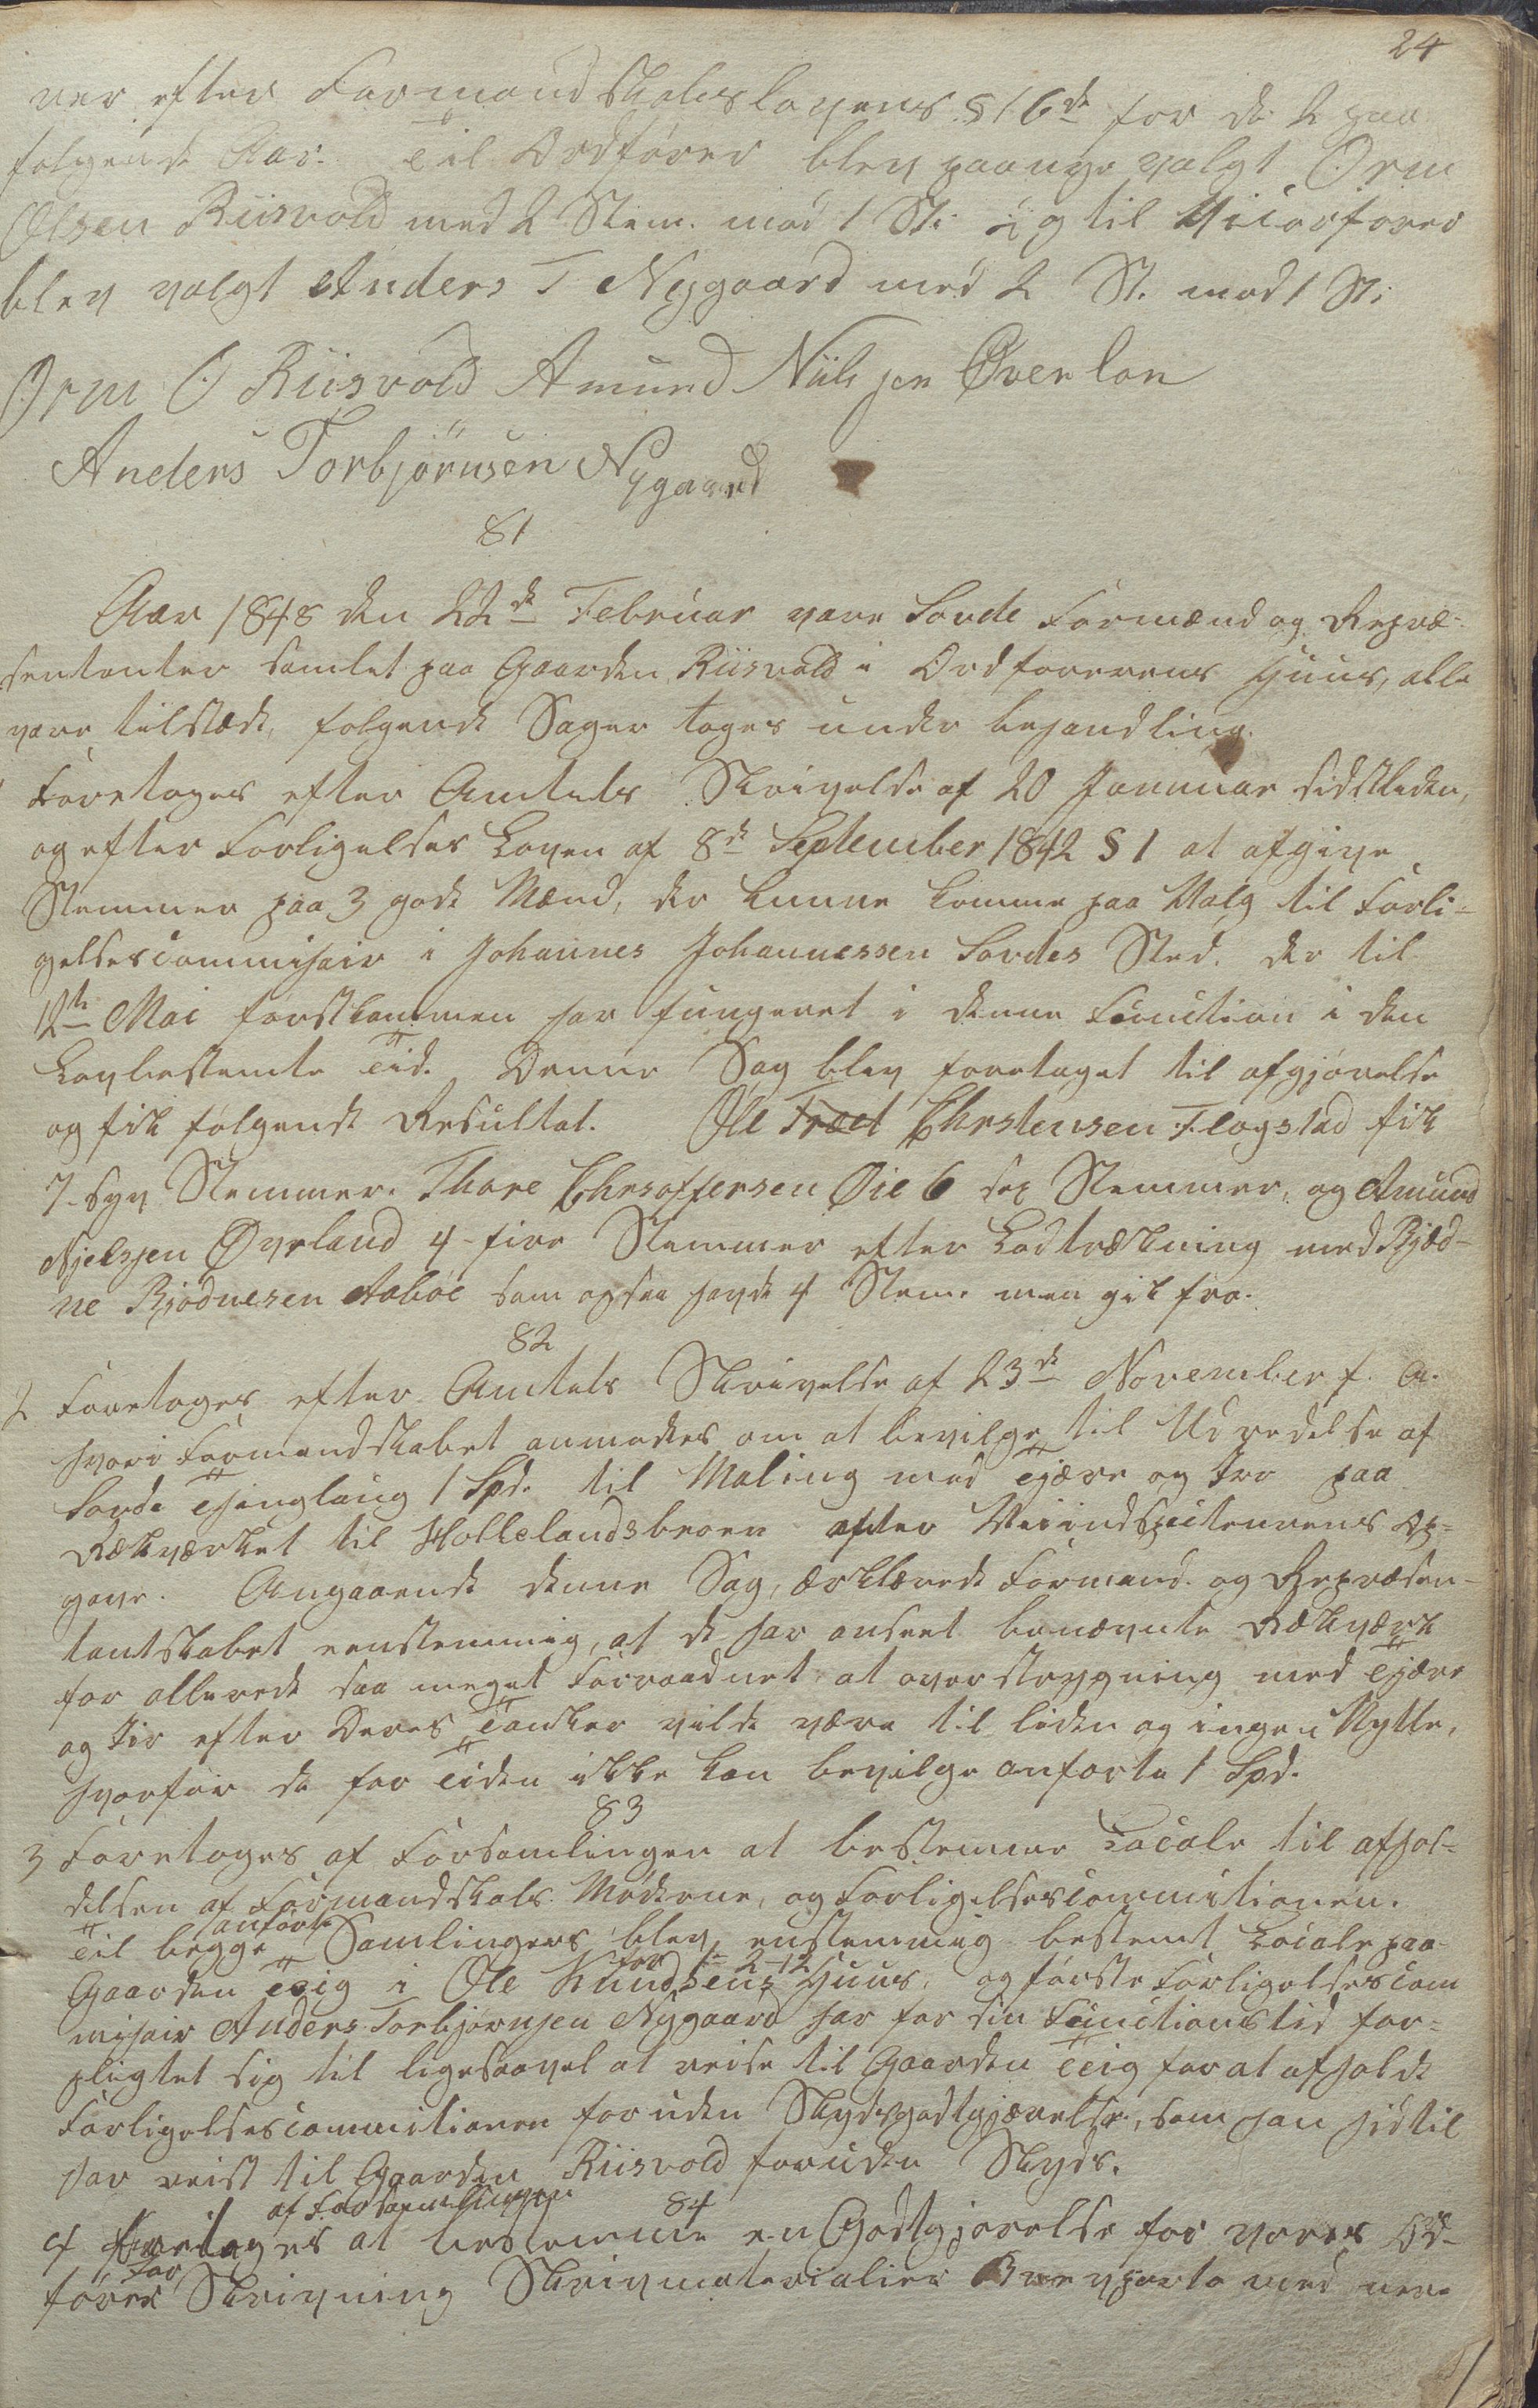 24
ner efter Formandskabslovens § 16de for de 2 paa
følgende Aar. Til Ordfører blev paanye valgt Orm
Olsen Riisvold med 2 Stem. mod 1 St: og til Viceorfører
blev valgt Anders T Nygaard med 2 St. mod 1 St:
Orm O Riisvold Amund Niilsen Øverlan
Anders Torbjörnsen Nygaard
81
Aar 1848 den 22de Februar vare Sovde Formænd og Repræ-
sentanter samlet paa Gaarden Riisvold i Ordførerens Huus, alle
vare tilstæde, følgende Sager toges under behandling.
Foretoges efter Amtets Skrivelse af 20 Januar sidstleden,
og efter Forligelses Loven af 8de September 1842 § 1 at afgive
Stemmer paa 3 gode Mænd, der kunne komme paa Valg til Forli-
gelsescommisair i Johannes Johannessen Sovdes Sted, der til
12te Mai førstkommen har fungeret i denne Function i den
Lovbestemte Tid. Denne Sag blev foretaget til afgjørelse
og fik følgende Resultat. Ole Chrstensen Flogstad fik
7-syv Stemmer. Thore Chrsoffersen Øie 6 sex Stemmer, og Amund
Njelssen Øvrland 4-fire Stemmer efter Lodtrækning med Bjød-
ne Bjødnesen Aabøe som ogsaa havde 4 Stem. men gik fra.
82
2 Foretoges efter Amtets Skrivelse af 23de November f. A.
hvori Formandskabet anmodes om at bevilge til Udredelse af
Sovde Thinglaug 1 Spd. til Maling med Tjære og  paa
Rækværket til Hollelandsbroen efter Veiinspecteurens Op-
gave. Angaaende denne Sag, erklærede Formand- og Repræsen-
tantskabet eenstemmig, at de har anseet benævnte Rækværk
for allerede saa meget Forraadnet at overstrygning med Tjære
og  efter Deres Tanker vilde være til liden og ingen Nytte,
hvorfor de for Tiden ikke kan bevilge anførte 1 Spd.
83
3 Foretoges af Forsamlingen at bestemme Locale til afhol-
delsen af Formandskabs Møderne, og Forligelsescommitionen.
Til begge anførte Samlingers blev enstemmig bestemt Locale paa
Gaarden Teig i Ole Knudsens Huus, og første Forligelsescom
misair Anders Torbjørnsen Nygaard har for sin Functionstid for-
pligtet sig til ligesaavel at reise til Gaarden Teig for at afholde
Forligelsescommitionen foruden Skydsgodtgjørelse, som han hidtil
har reist til Gaarden Riisvold foruden Skyds.
84
4 Foretoges af Forsamlingen at bestemme en Godtgjørelse for vores Ord-
fører for Skrivning Skrivmaterialier Brevporto med mere